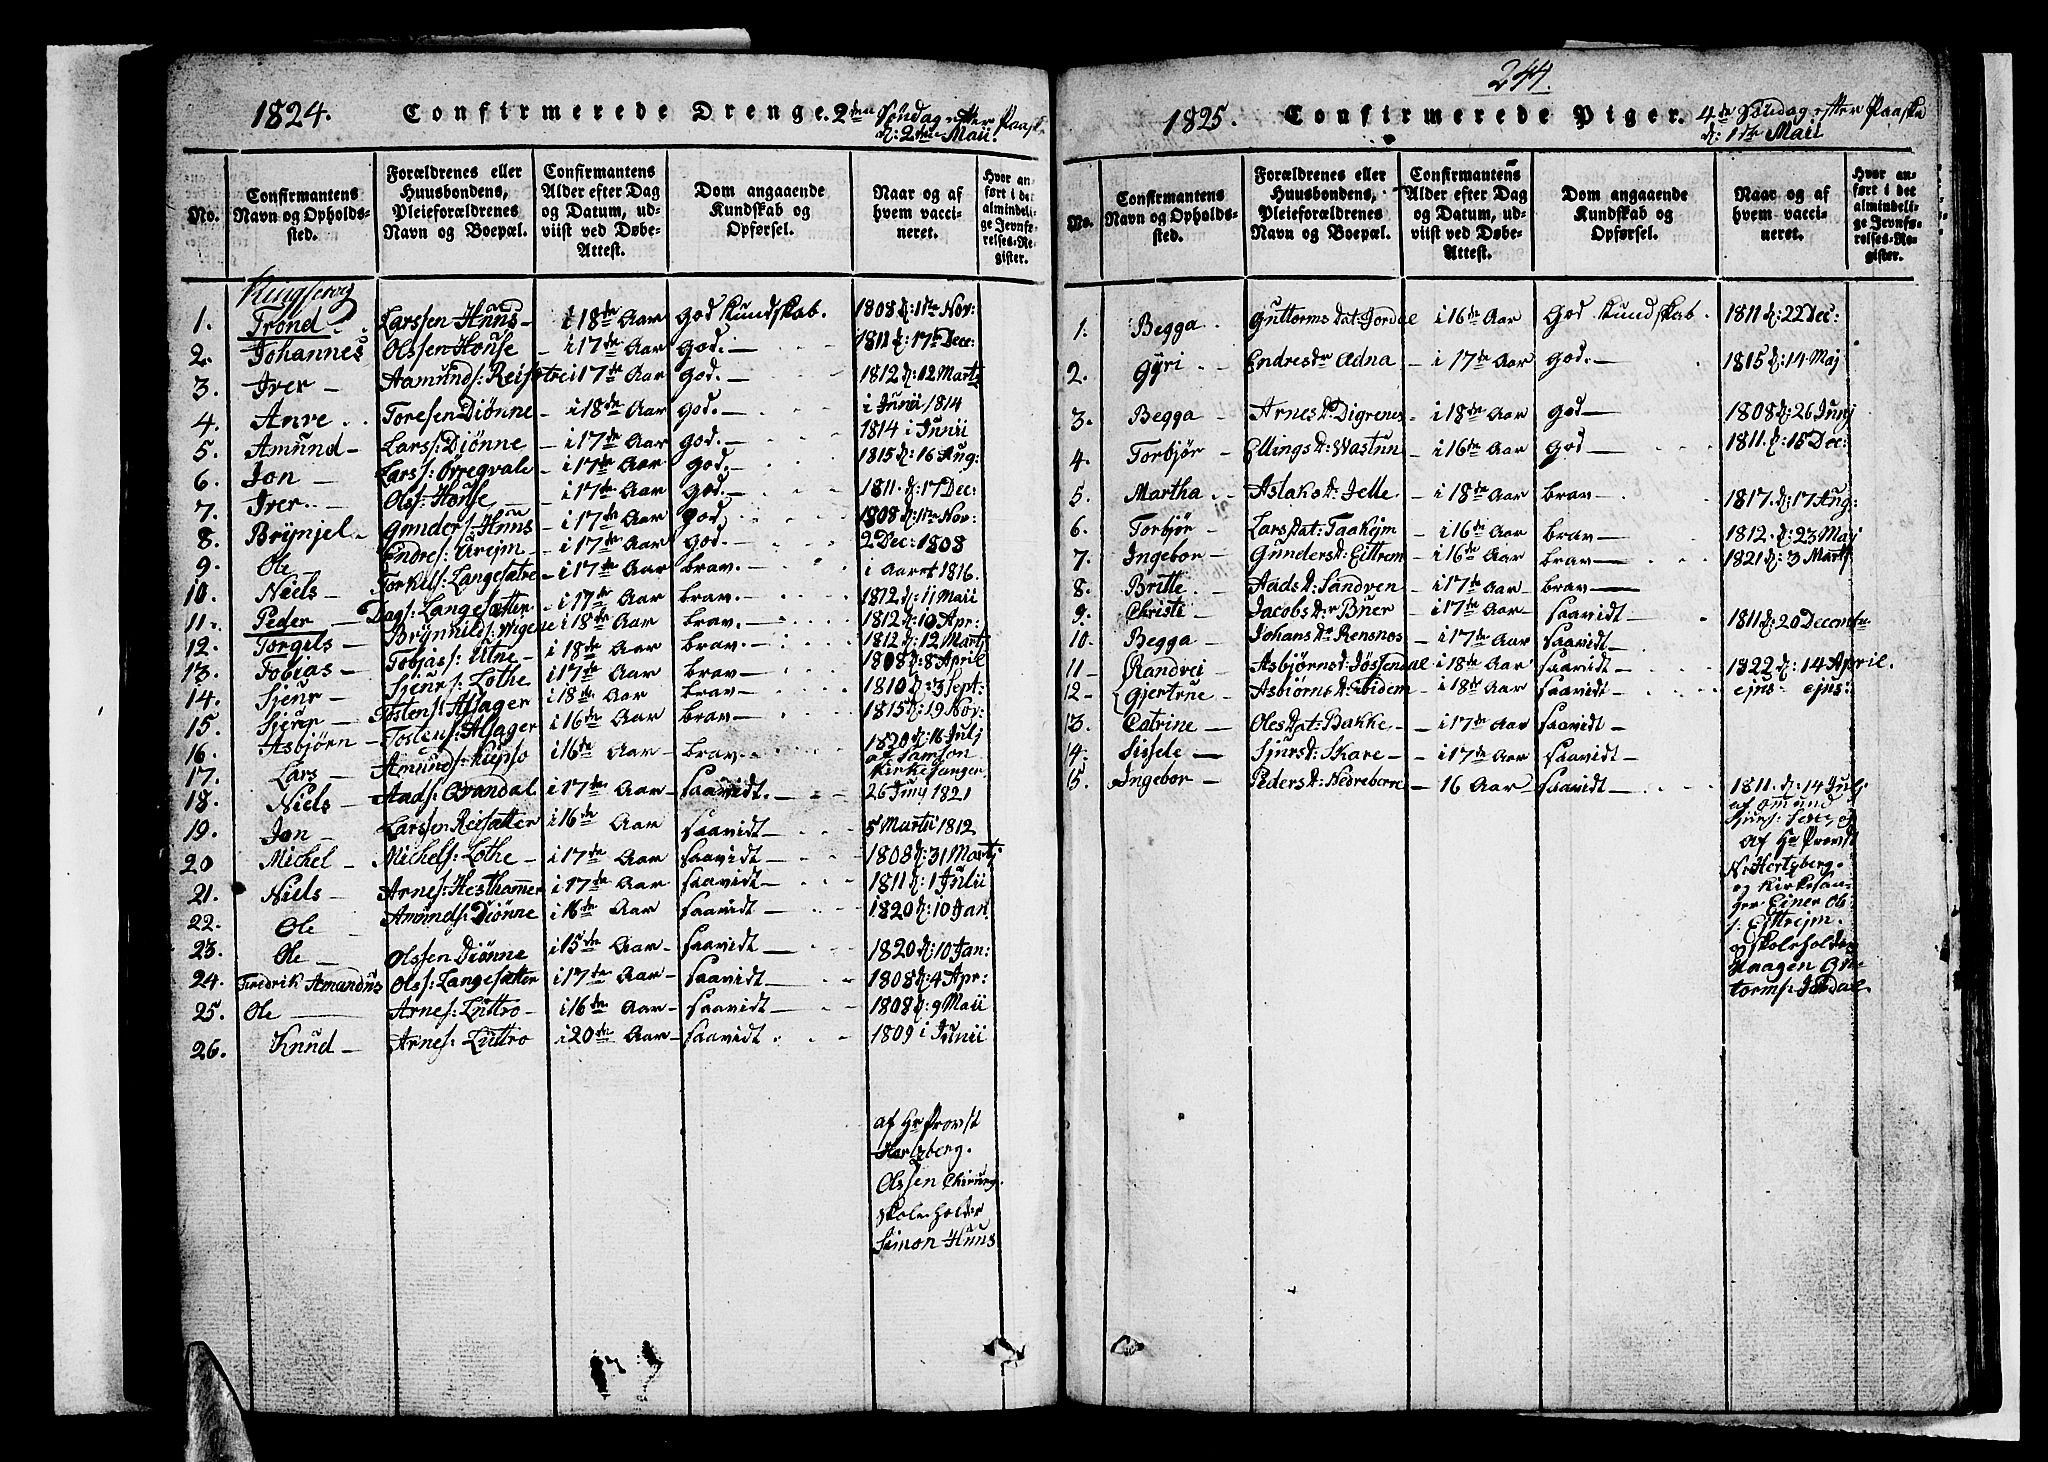 1824. Confirmerede Drenge. 2den Søndag efter Paask
d: 2den Maii.
No.
Confirmantens Navn og Opholdssted.
Forældrenes eller Huusbondens, Pleieforældrenes Navn og Boepæl.
Confirmantens Alder efter Dag og Datum, udviist ved Døbe-Attest.
Dom angaaende Kundskab og Opførsel.
Naar og af hvem vaccineret.
Hvor anført i det almindelige Jevnførelses-Register.
Kingservig
1. Trond Larssen Huus i 18de Aar God Kundskab. 1808 d: 1ste Nov:
2. Johannes Olssen House i 17de Aar God. 1811 d: 17de Dec:
3. Iver Aamunds: Reisetre i 17de Aar God. 1812 d: 12 Marts
4. Anve Toresen Diønne i 18de Aar God. i Junii 1814
5. Amund Larss: Diønne i 17de Aar God. 1814 i Junii
6. Jon Larss: Orregvale i 17de Aar God. 1815 d: 16 Aug:
7. Iver Olss: House i 17de Aar God. 1811 d: 17 Dec:
8. Brynjel Gunders: Huus i 17de Aar God. 1808 d: 1ste Nov:
9. Ole Endres: Areim i 17de Aar God. 2 Dec: 1808
10. Niels Torkils: Langesætre i 17de Aar brav. i Aaret 1816.
11. Peder Dags: Langesætter i 17de Aar brav. 1812 d: 11 Maii
12. Torgils Brynhilds: Wigene i 18de Aar brav. 1812 d: 10 Apr:
13. Tobias Tobjas: Utne i 18de Aar brav. 1812 d: 12 Marts
14. Sjeur Sjeurs: Lothe i 17de Aar brav 1808 d: 8 April
15. Sjeur Tostens: Alsager i 18de Aar brav 1810 d: 3 Sept:
16. Asbjørn Tostens: Alsager i 16de Aar brav 1815 d: 19 Nov:
17. Lars Amunds: Kiepso i 16de Aar brav 1820 d: 16 Julj
af Samson
Kirkesanger
18. Niels Aads: Brandal i 17de Aar saavidt. 26 Junj 1821
19. Jon Larssen Reisætter i 16de Aar saavidt 5 Martii 1812
20 Michel Michels: Lothe i 17de Aar saavidt 1808 d: 31 Martj
21. Niels Arnes: Hesthammer i 17de Aar saavidt 1811 d: 1 Julii
22. Ole Amunds: Diønne i 16de Aar saavidt 1820 d: 10 Jan
23. Ole Olssen Diønne i 15de Aar saavidt 1820 d: 10 Jan:
24. Fredrik Amandus Olss: Langesætter i 17de Aar saavidt 1808 d: 4 Apr:
25. Ole Arnes: Luttro i 16de Aar saavidt 1808 d: 9 Maii
26. Knud Arnes: Luttro i 20de Aar saavidt 1809 i Junii
af Hr Provst
Hertzberg.
Olssen Chirurg.
skoleholder
Simon Huus
244.
1825. Confirmerede Piger. 4de Søndag efter Paaske
d: 1ste Maii
No.
Confirmantens Navn og Opholdssted.
Forældrenes eller Huusbondens, Pleieforældrenes Navn og Boepæl.
Confirmantens Alder efter Dag og Datum, udviist ved Døbe-Attest.
Dom angaaende Kundskab og Opførsel.
Naar og af hvem vaccineret.
Hvor anført i det almindelige Jevnførelses-Register.
1. Begga Guttorms Dat: Jordal i 16de Aar God Kundskab. 1811 d: 22 Dec:
2. Gyri Endresdr Adna i 17de Aar God. 1815 d: 14 Maj
3. Begga Arnes D: Digrenes i 18de Aar God 1808 d: 26 Junj
4. Torbjør Ellings D: Wastun i 16de Aar God 1811. d: 15 Dec:
5. Martha Aslaks D: Jelle i 18de Aar brav 1817. d: 17 Aug:
6. Torbjør Lars Dat: Taakejm i 16de Aar brav 1812. d: 23 Maj
7. Ingebor Gunders D: Eittrem i 16de Aar brav 1821 d: 3 Marts
8. Britte Aads D: Sandven i 17de Aar brav
9. Christi Jacobs Dr Buer i 17de Aar saavidt
10. Begga Johans Dr Rensnos i 17de Aar saavidt 1811 d: 20 December
11 Randvei Asbjørns D: Jøssendal i 18de Aar saavidt 1822 d: 14 April.
12 Gjertrue Asbjørns D: Eidem i 18de Aar saavidt ejus ejus:
13. Catrine Oles Dat: Bakke i 17de Aar saavidt
14. Sissele Sjurs D: Skare i 17de Aar saavidt
15. Ingebor Peders D: Nedreberre 16 Aar saavidt 1811. d: 14 Julj
af Omund
Af Hr Provst
N: Hertzberg.
og Kirkesanger
Einer Ols:
Eittrejm.
og skoleholder
Haagen Guttorms:
Jordal.